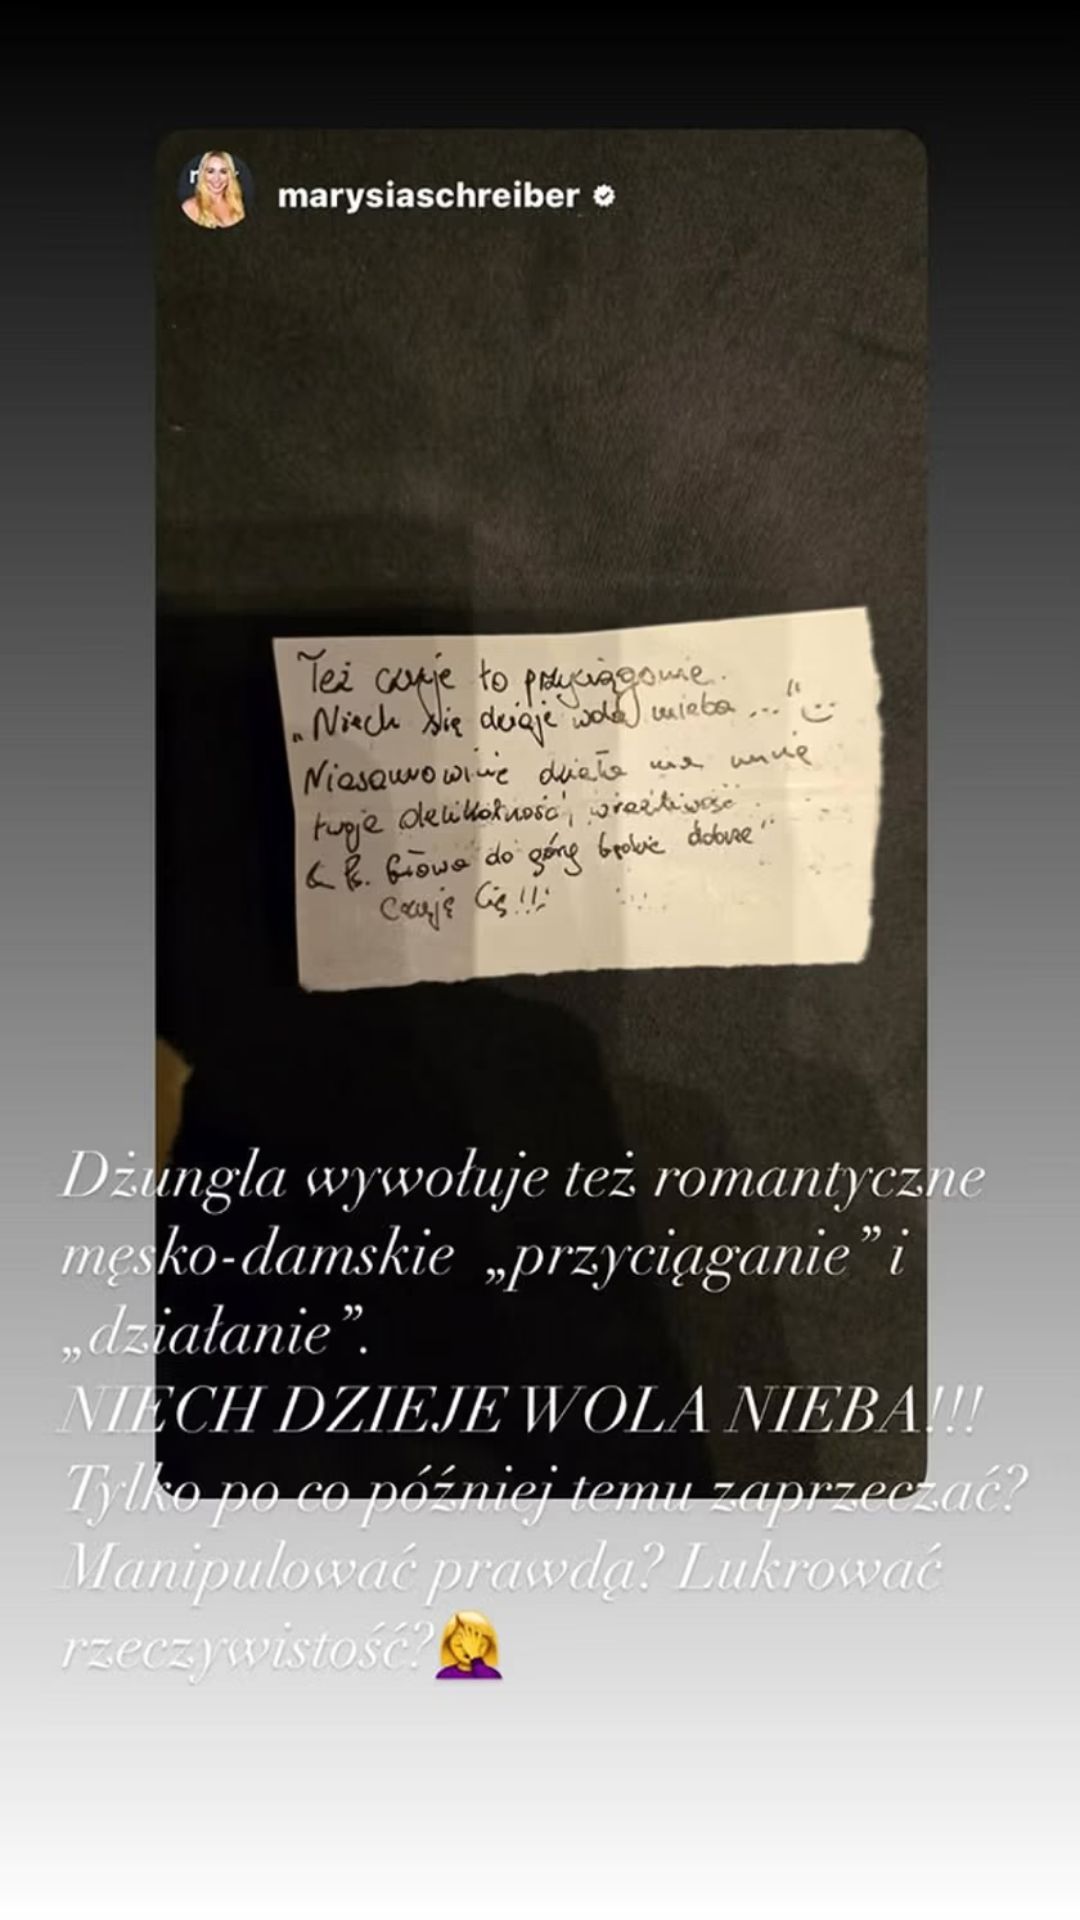 marysiaschreiber
Też czuję to przyciąganie.
„Niech się dzieje wola nieba ..."
Niesamowicie działa na mnie
twoja delikatność, wrażliwość
Ps. Głowa do góry będzie dobrze"
Czuję Cię!!!
Dżungla wywołuje też romantyczne
męsko-damskie „przyciąganie” i
„działanie”.
NIECH DZIEJE WOLA NIEBA!!!
Tylko po co później temu zaprzeczać?
Manipulować prawdą? Lukrować
rzeczywistość?